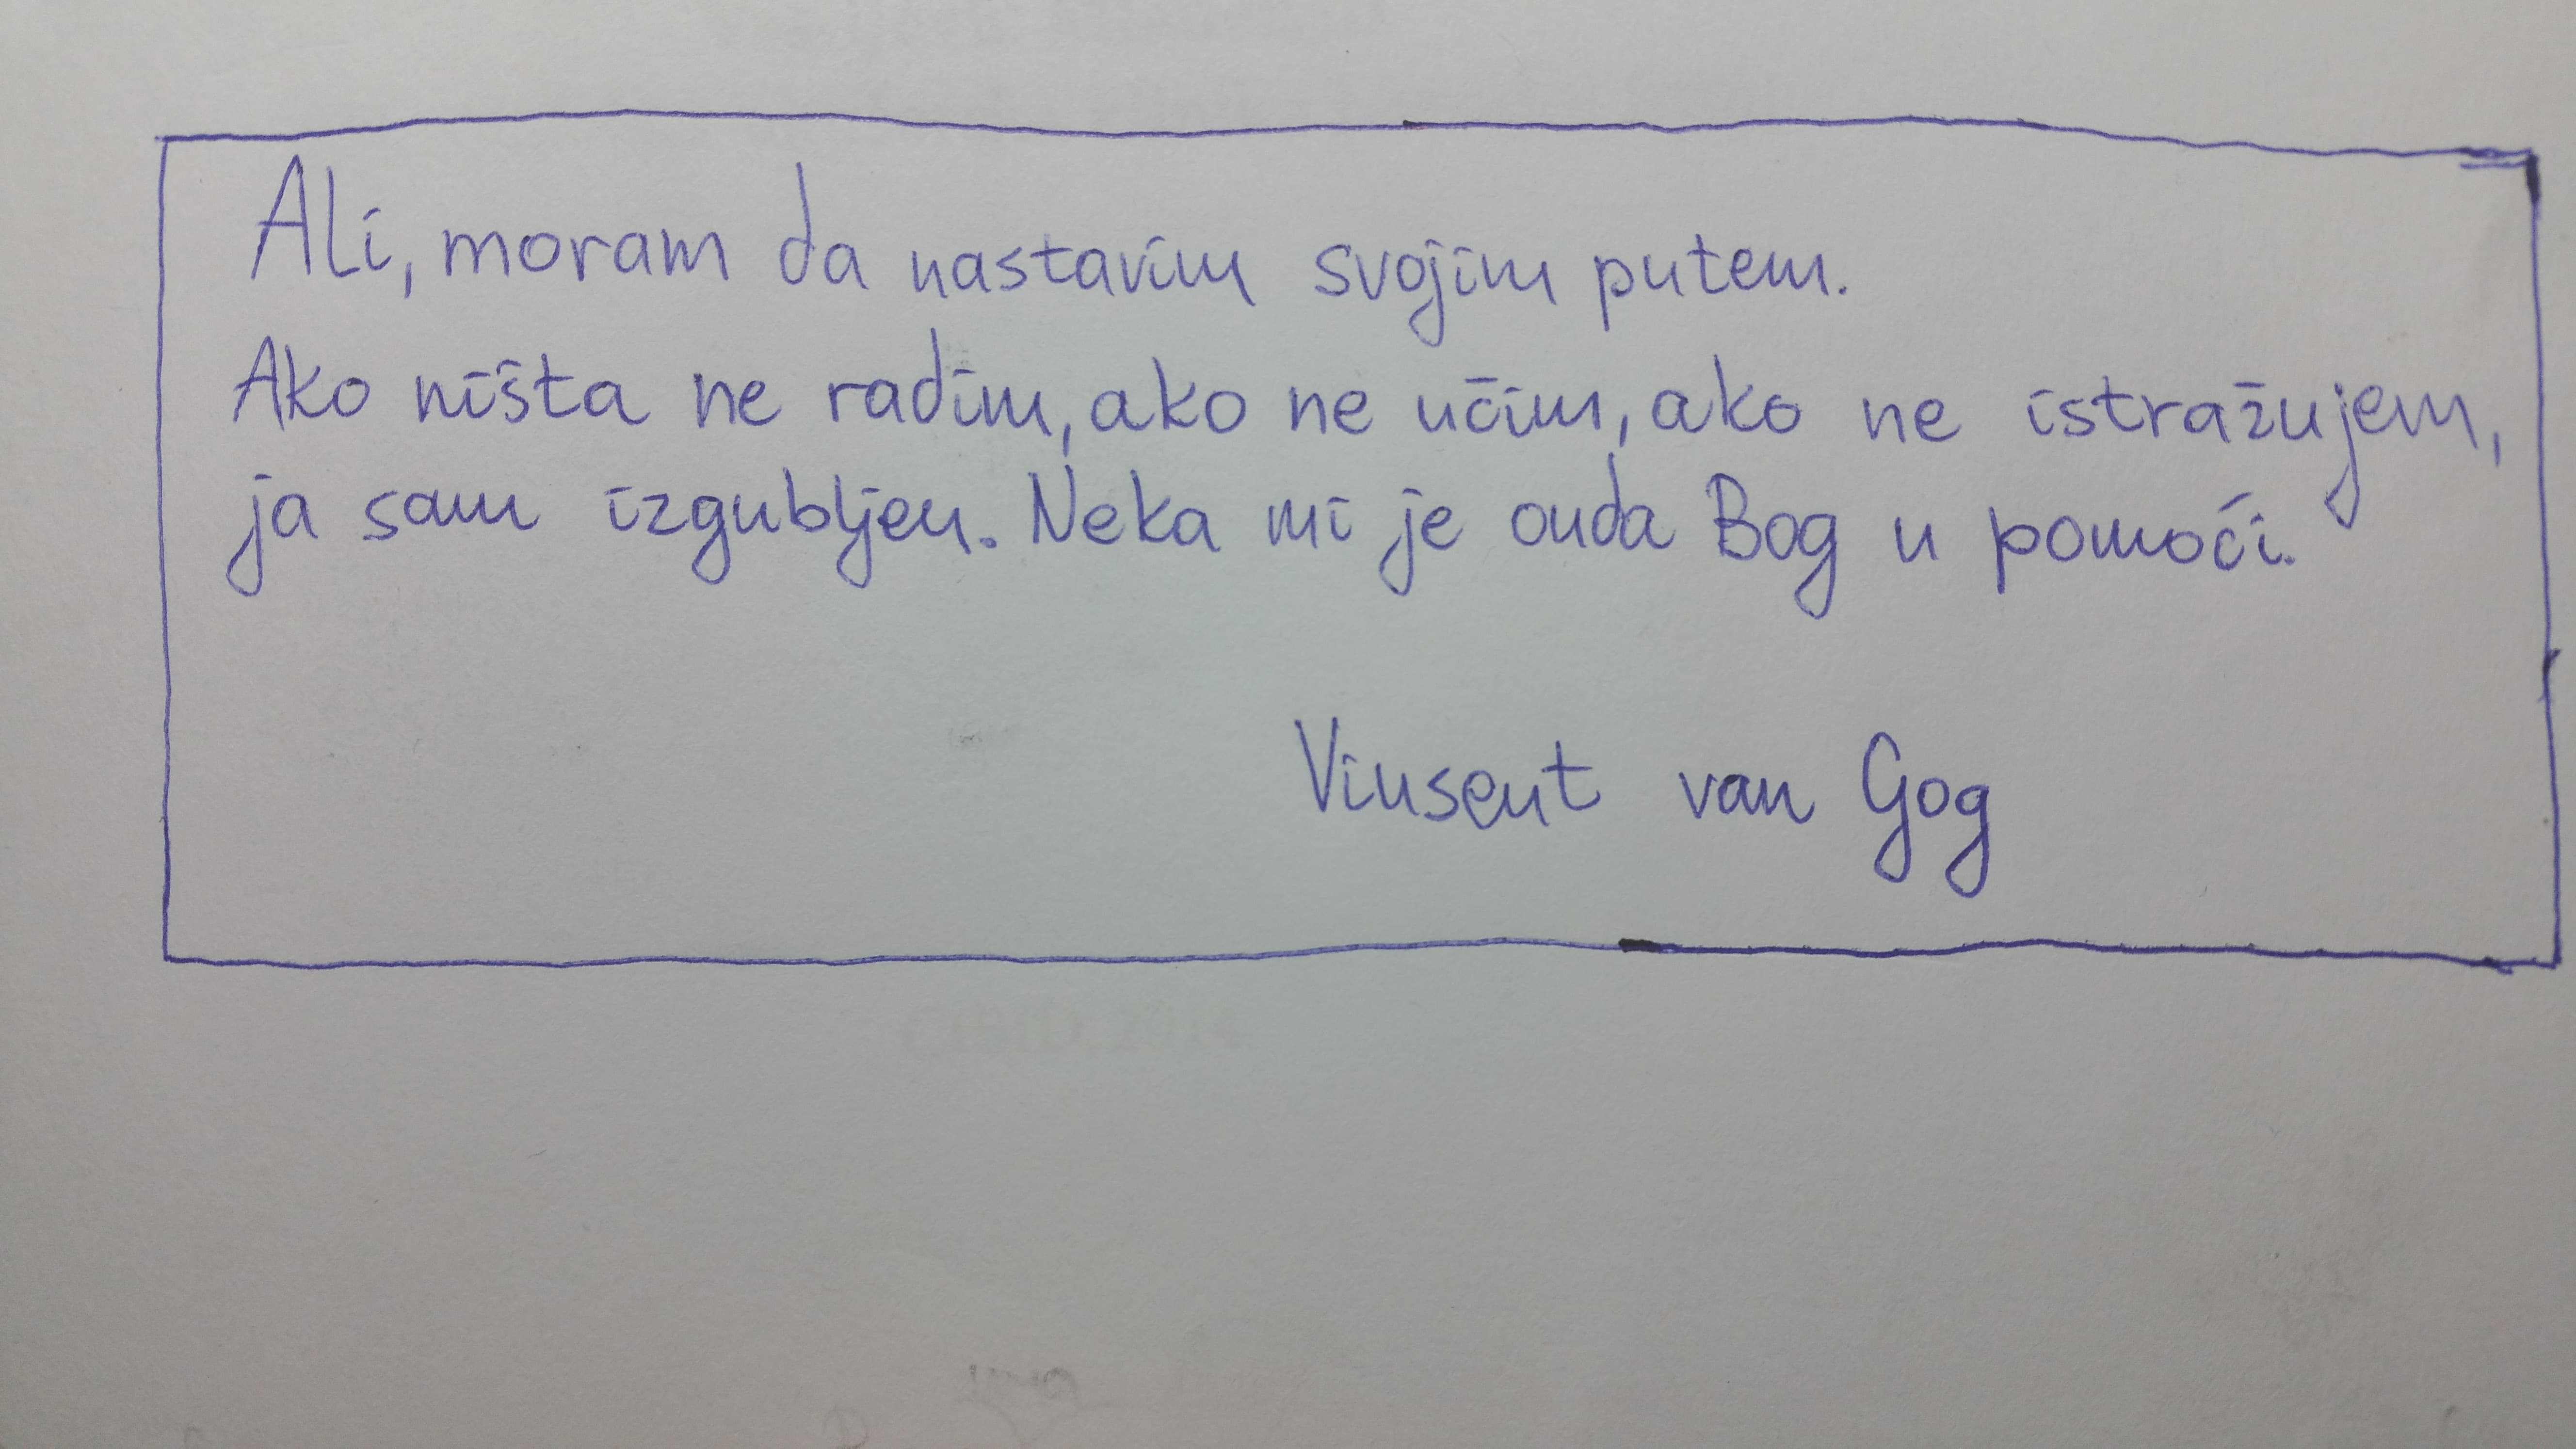 Ali, moram da nastavim svojim putem.
Ako ništa ne radim, ako ne učim, ako ne istražujem,
ja sam izgubljen. Neka mi je onda Bog u pomoći.
Vinsent van Gog